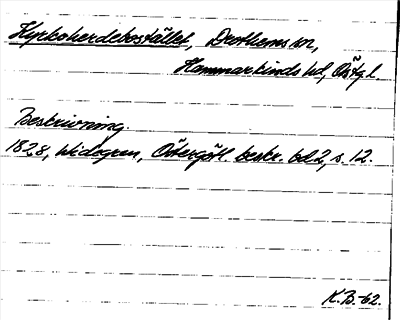 Kyrkoherdebostället, Drothems sn,
Hammarkinds hd, Östgl.
Beskrivning.
1828, Widegren, Östergötl. beskr. bd 2, s. 12.
K.B.-62.